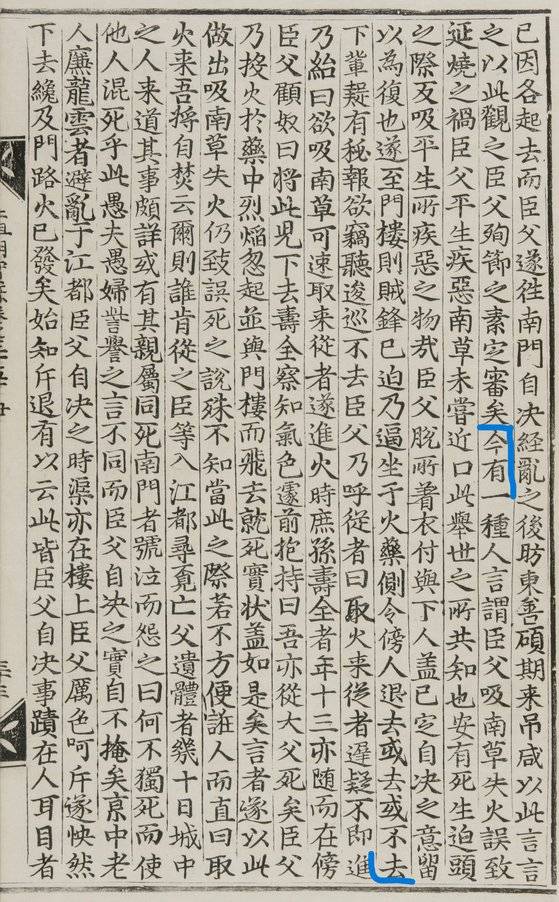 已因各起去而臣父遂徃南門自决經亂之後昉東善碩期来吊咸以此言言
之以此觀之臣父殉節之素㝎審矣今有一種人言謂臣父吸南草失火誤致
延燒之禍臣父平生疾惡南草未甞近口此舉世之所共知也安有死生迫頭
之際反吸平生所疾惡之物㢤臣父脫所着衣付與下人盖已㝎自决之意留
以為復也遂至門樓則賊鋒已迫乃逼坐于火藥側令傍人退去或去或不去
下軰疑有秘報欲竊聽逡巡不去臣父乃呼從者曰取火来從者遲疑不即進
乃紿曰欲吸南草可速取来從者遂進火時庶孫壽全者年十三亦随而在傍
臣父顧奴曰将此児下去壽全察知氣色遽前抱持曰吾亦從大父死矣臣父
乃投火於藥中烈焰忽起並與門樓而飛去就死實状盖如是矣言者遂以此
做出吸南草失火仍致誤死之說殊不知當此之際若不方便誑人而直曰取
火来吾将自焚云爾則誰肯從之臣等入江都尋覔亡父遺體者幾十日城中
之人来道其事頗詳或有其親屬同死南門者號泣而怨之曰何不獨死而使
他人混死乎此愚夫愚婦訾譽之言不同而臣父自决之實自不掩矣京中老
人㢘龍雲者避亂于江都臣父自决之時渠亦在樓上臣父厲色呵斥遂怏然
下去纔及門路火已發矣始知斥退有以云此皆臣父自决事蹟在人耳目者